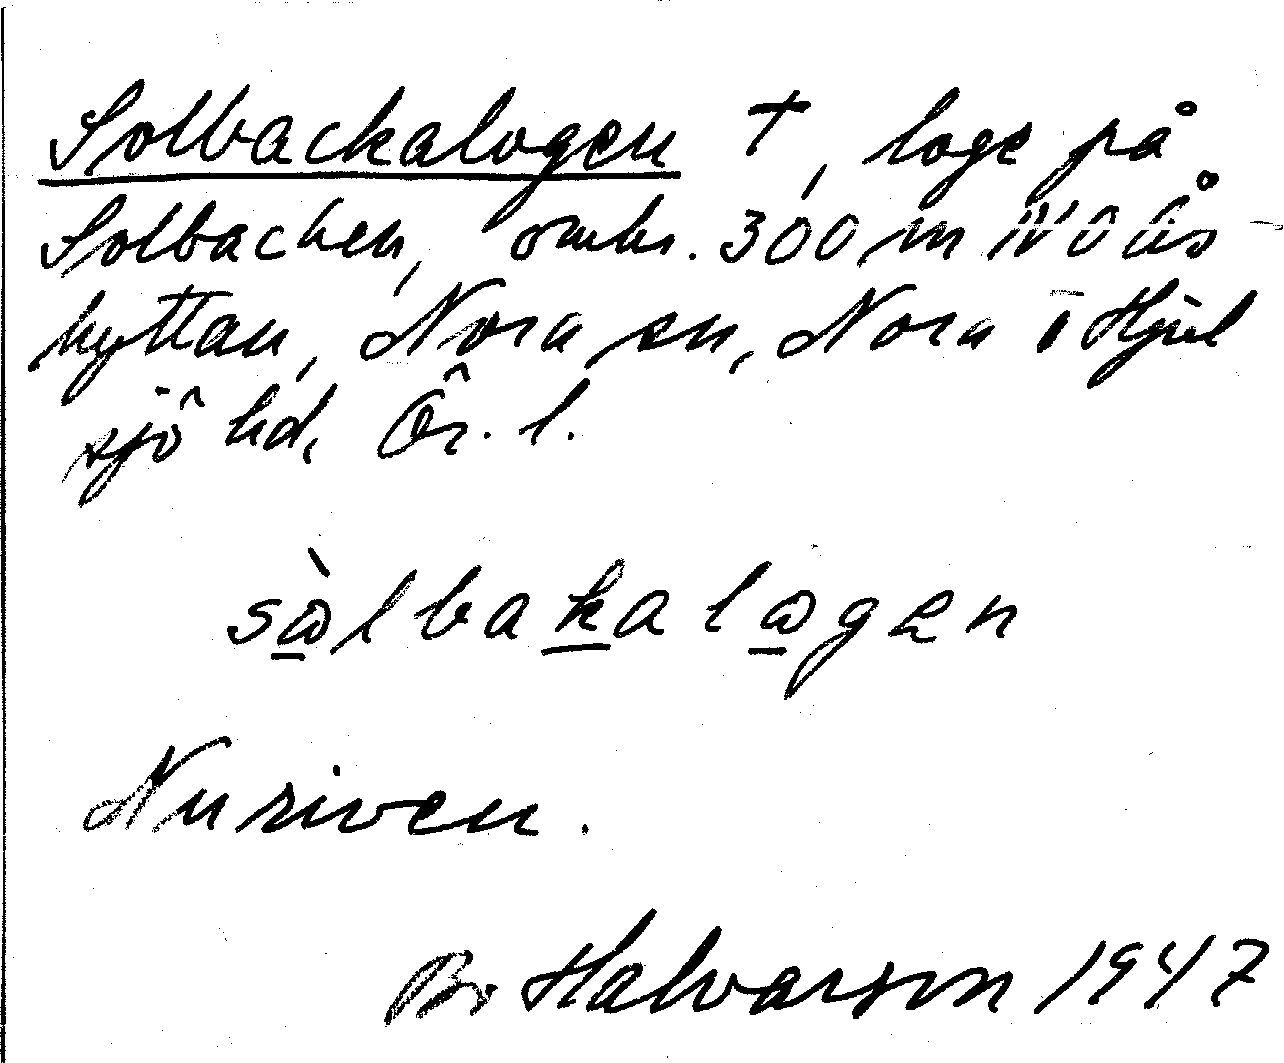 Solbackalogen †, loge på
Solbacken, omkr. 300 m NO Ås-
hyttan, Nora sn, Nora o Hjul
sjö hd, Ör. l.
sὼlbakalωgen
Nu riven.
Br Halvarson 1947